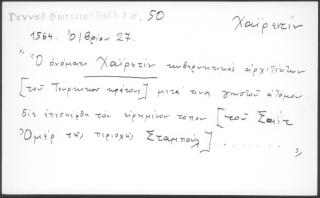 Γενναδ. Φωτιστος Βιβλ. 1 σ. 50
Χαϊρεντίν
1564. Ὀ/βρίου 27.
"Ὁ ὀνόματι Χαϊρετίν κυβερνητικός ἀρχιτέκτων
[τοῦ Τουρκικοῦ κράτους] μετά τινος γνωστοῦ ἀτόμου
διά ἐπεσκέφθη τόν εἰρημένον τόπον [τοῦ Σαΐτ
Ὀμέρ τῆς περιοχῆς Σταμπούλ] .......
"